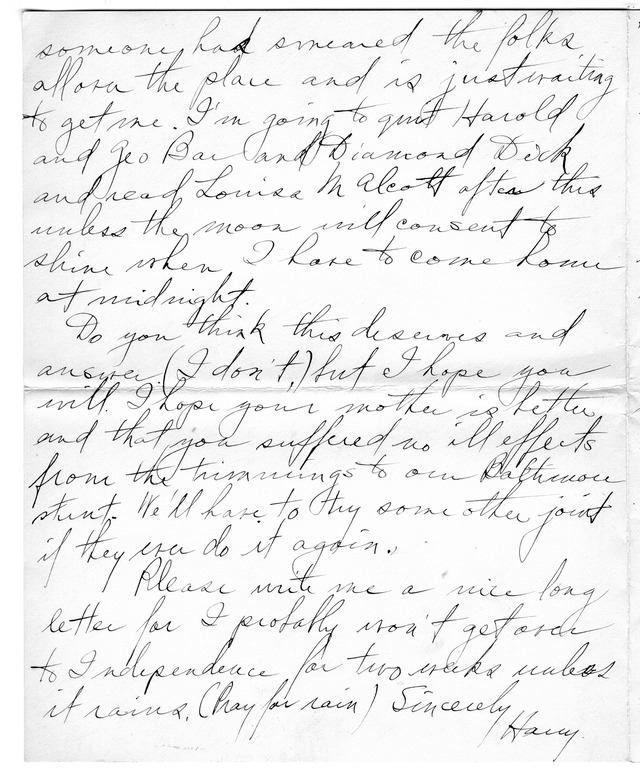 someone had smeared the folks
all over the place and is just waiting
to get me. I'm going to quit Harold
and Geo Bar and Diamond Dick
and read Louisa M Alcott after this
unless the moon will consent to
shine when I have to come home
at midnight.
Do you think this deserves and
answer (I don't,) but I hope you
will. I hope your mother is better
and that you suffered no ill effects
from the trimmings to our Baltimore
stunt. We'll have to try some other joint
if they ever do it again.
Please write me a nice long
letter for I probably won't get over
to Independence for two weeks unless
it rains. (Pray for rain) Sincerely
Harry.